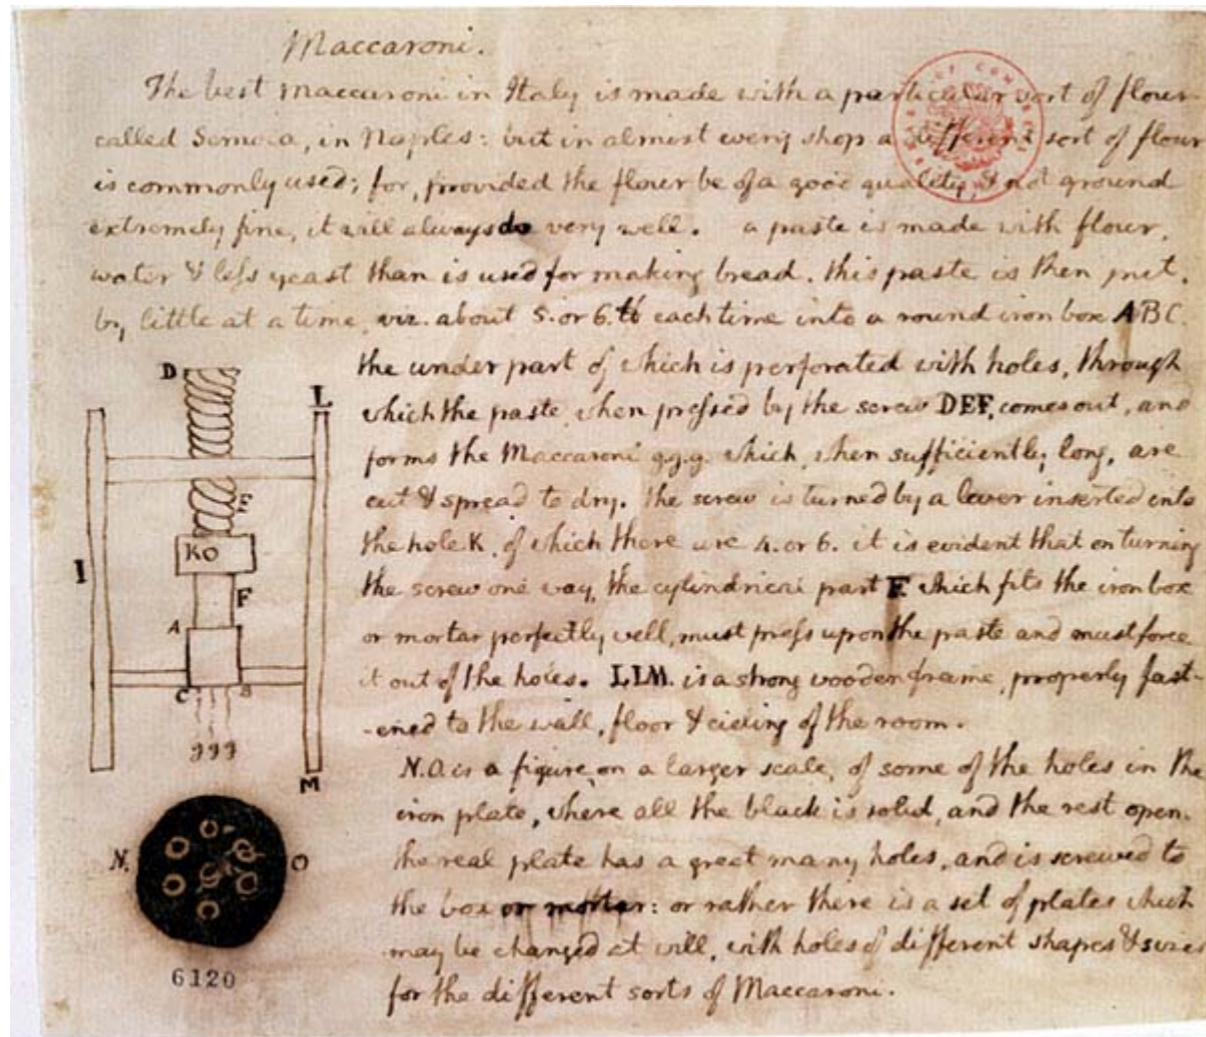 Maccaroni.
The best maccaroni in Italy is made with a particular sort of flour
called Semola, in Naples: but in almost every shop a different sort of flour
is commonly used; for, provided the flour be of a good quality, & not ground
extremely fine, it will always do very well. a paste is made with flour,
water & less yeast than is used for making bread. this paste is then put,
by little at a time, viz. about 5. or 6. ℔ each time into a round iron box ABC.
the under part of which is perforated with holes, through
which the paste, when pressed by the screw DEF, comes out, and
forms the Maccaroni g.g.g. which, when sufficiently long, are
cut & spread to dry. the screw is turned by a lever inserted into
the hole K, of which there are 4. or 6. it is evident that on turning
the screw one way, the cylindrical part F. which fits the iron box
or mortar perfectly well, must press upon the paste and must force
it out of the holes. LLM. is a strong wooden frame, properly fast-
-ened to the wall, floor & cieling of the room.
N.O. is a figure, on a larger scale, of some of the holes in the
iron plate, where all the black is solid, and the rest open.
the real plate has a great many holes, and is screwed to
the box or mortar: or rather there is a set of plates which
may be changed at will, with holes of different shapes & sizes
for the different sorts of Maccaroni.
D
L
E
K
I
F
A
C
B
ggg
M
N.
O
6120